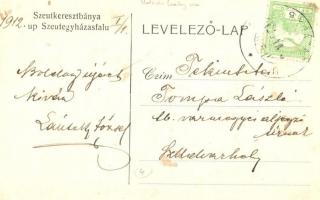 Szeutkeresztbánya
1912. up Szeutegyházasfalu I/1.
LEVELEZŐ-LAP
Boldog újévet
kiván
József
Czim Tekintetes
Tompa László
vármegyei aljegyző
úrnak
Székelyudvarhely